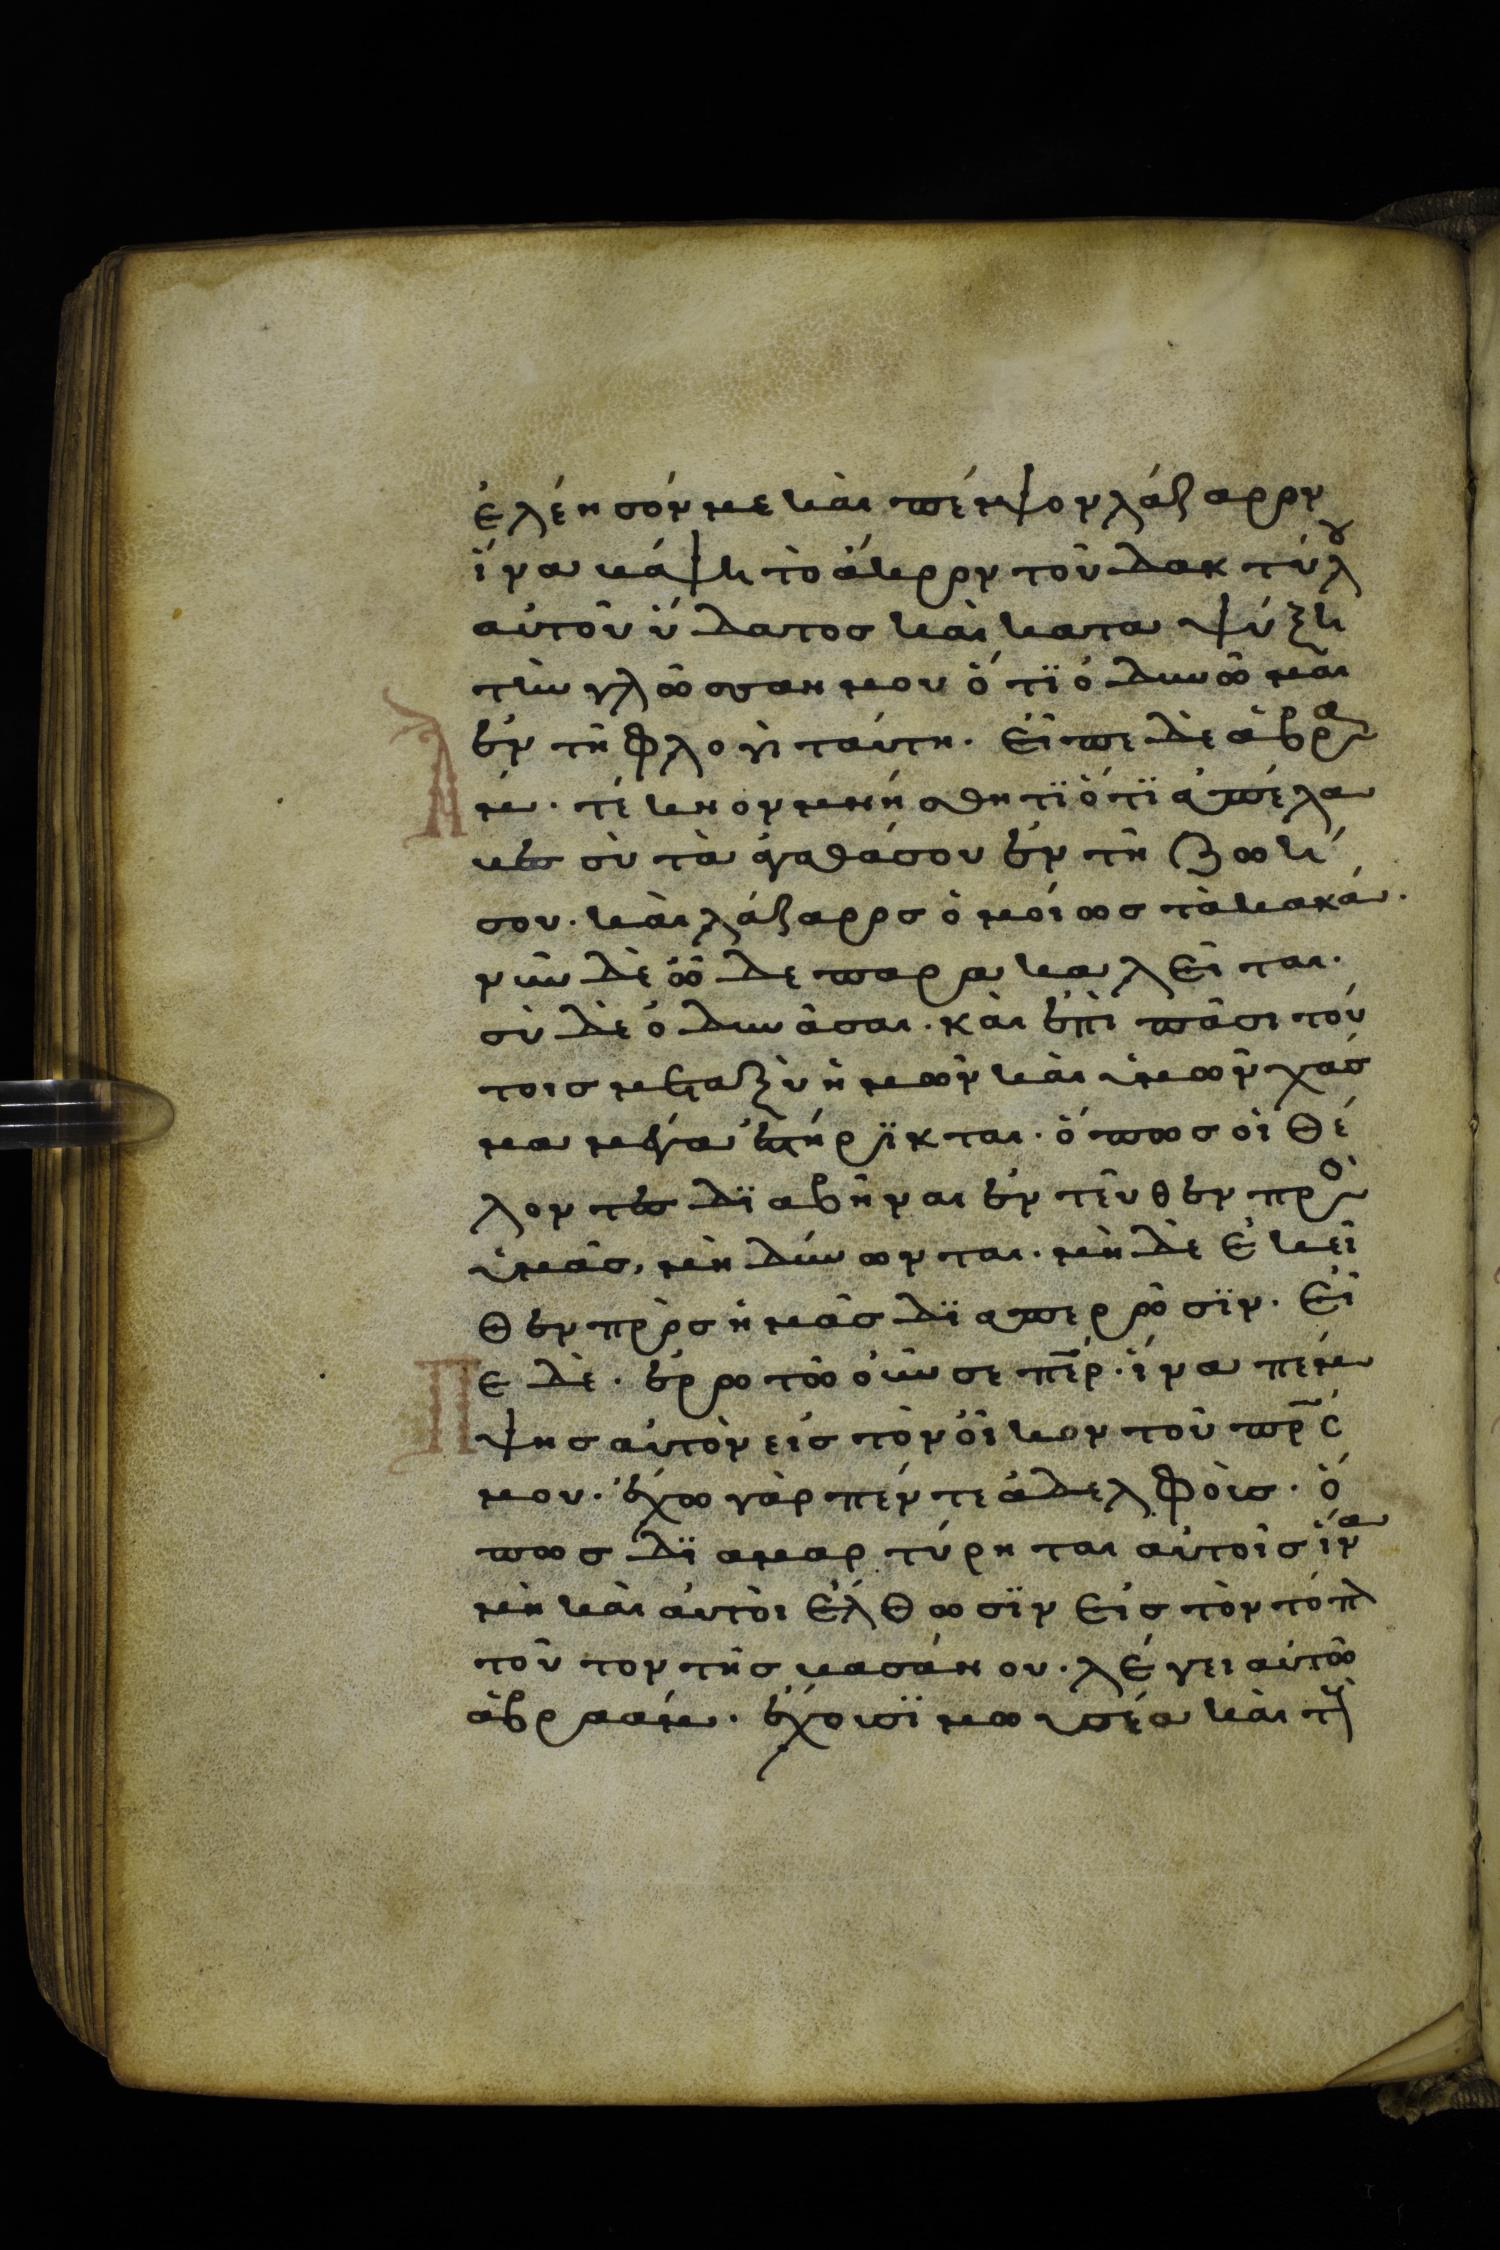 ἐλέησόν με καὶ πέμψον λάζαρον
ἵνα κάψει τὸ ἄκρον τοῦ δακτύλου
αὐτοῦ ὕδατος καὶ καταψύξει
τὴν γλῶσσαν μου ὅτϊ ὀδυνῶμαι
ἐν τῆ φλογὶ ταύτη· Εἶπε δὲ ἀβραὰ
μ· τέκνον μνήσθητϊ ὅτϊ ἀπέλα
κες σὺ τὰ ἀγαθά σου ἐν τῆ ζωεί
σου· καὶ λάζαρος ὁμοίως τὰ κακά·
νῦν δὲ ὧδε παρακαλεῖται·
σὺ δὲ ὀδυνᾶσαι· καὶ ἐπὶ πᾶσι τού
τοις μεταξὺ ἡμῶν καὶ ὑμῶν χάσ
μα μέγα ἐστήρϊκται· ὅπως οἱ θέ
λοντες δϊαβῆναι ἐντεῦθεν πρὸς
ὑμᾶς, μὴ δύνωνται· μὴ δὲ ἐκεῖ
θεν πρὸς ἡμᾶς δϊαπερῶσϊν· Εἶ
ε δὲ· ἐρωτῶ οὖν σε πέρ· ἵνα πέμ
ψης αὐτὸν εἰς τὸν οἶκον τοῦ πρς
μου· ἔχω γὰρ πέντε ἀδελφοὶς· ὅ
πως δϊαμαρτύρηται αὐτοῖς ἵνα
μὴ καὶ αὐτοὶ ἔλθωσϊν εἰς τὸν τόπ
τοῦτον τῆς κασάνου· λέγει αὐτῶ
ἀβραάμ· ἔχουσϊ μωυσέα καὶ τοὺ